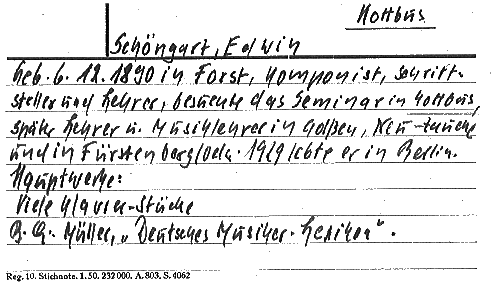 Kottbus
Schöngart, Edwin
Geb. 6. 12. 1890 in Forst, Komponist, Schrift-
steller und Lehrer, besuchte das Seminar in Kottbus,
später Lehrer u. Musiklehrer in Golßen, Neu-Zauche
und in Fürstenberg/Oder. 1929 lebte er in Berlin.
Hauptwerke:
Viele Klavier-Stücke
B. Q. Müller, „Deutsches Musiker-Lexikon".
Reg. 10. Stichnote. 1. 50. 232 000. A. 803. S. 4062